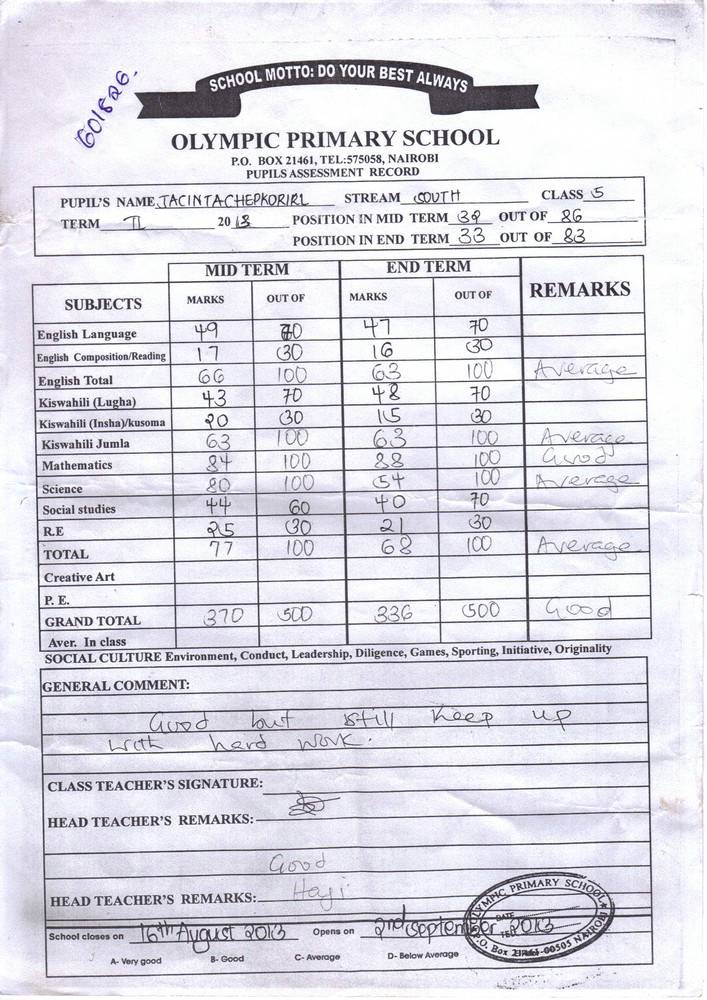 601826.
SCHOOL MOTTO: DO YOUR BEST ALWAYS
OLYMPIC PRIMARY SCHOOL
P.O. BOX 21461, TEL:575058, NAIROBI
PUPILS ASSESSMENT RECORD
PUPIL'S NAME JACINTA CHEPKORIR STREAM SOUTH CLASS 5
TERM II 2013 POSITION IN MID TERM 39 OUT OF 86
POSITION IN END TERM 33 OUT OF 83
MID TERM END TERM
SUBJECTS MARKS OUT OF MARKS OUT OF REMARKS
English Language 49 70 47 70
English Composition/Reading 17 30 16 30
English Total 66 100 63 100 Average
Kiswahili (Lugha) 43 70 48 70
Kiswahili (Insha)/kusoma 20 30 15 30
Kiswahili Jumla 63 100 63 100 Average
Mathematics 84 100 88 100 Good
Science 80 100 54 100 Average
Social studies 44 60 40 70
R.E 25 30 21 30
TOTAL 77 100 68 100 Average
Creative Art
P. E.
GRAND TOTAL 370 500 336 500 Good
Aver. In class
SOCIAL CULTURE Environment, Conduct, Leadership, Diligence, Games, Sporting, Initiative, Originality
GENERAL COMMENT:
Good but still keep up
with hard work.
CLASS TEACHER'S SIGNATURE:
HEAD TEACHER'S REMARKS:
Good
HEAD TEACHER'S REMARKS:
School closes on 16th August 2013 Opens on 2nd September 2013
A- Very good B- Good C- Average D- Below Average
OLYMPIC PRIMARY SCHOOL
DATE
P.O. Box 21461-00505 NAIROBI